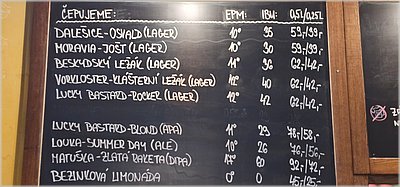 ČEPUJEME: EPM: IBU: 0,5l/0,25l
DALEŠICE-OSVALD (LAGER) 10° 35 59,-/39,-
MORAVIA-JOŠT (LAGER) 10° 30 59,-/39,-
BESKYDSKÝ LEŽÁK (LAGER) 11° 36 62,-/42,-
VORKLOSTER-KLÁŠTERNÍ LEŽÁK (LAGER) 12° 40 62,-/42,-
LUCKY BASTARD-ROCKER (LAGER) 12° 42 62,-/42,-
LUCKY BASTARD-BLOND (APA) 11° 29 76,-/56,-
LOUKA-SUMMER DAY (ALE) 10° 26 76,-/56,-
MATUŠKA-ZLATÁ RAKETA (DIPA) 17° 60 92,-/72,-
BEZINKOVÁ LIMONÁDA 0° 0 45,-/25,-